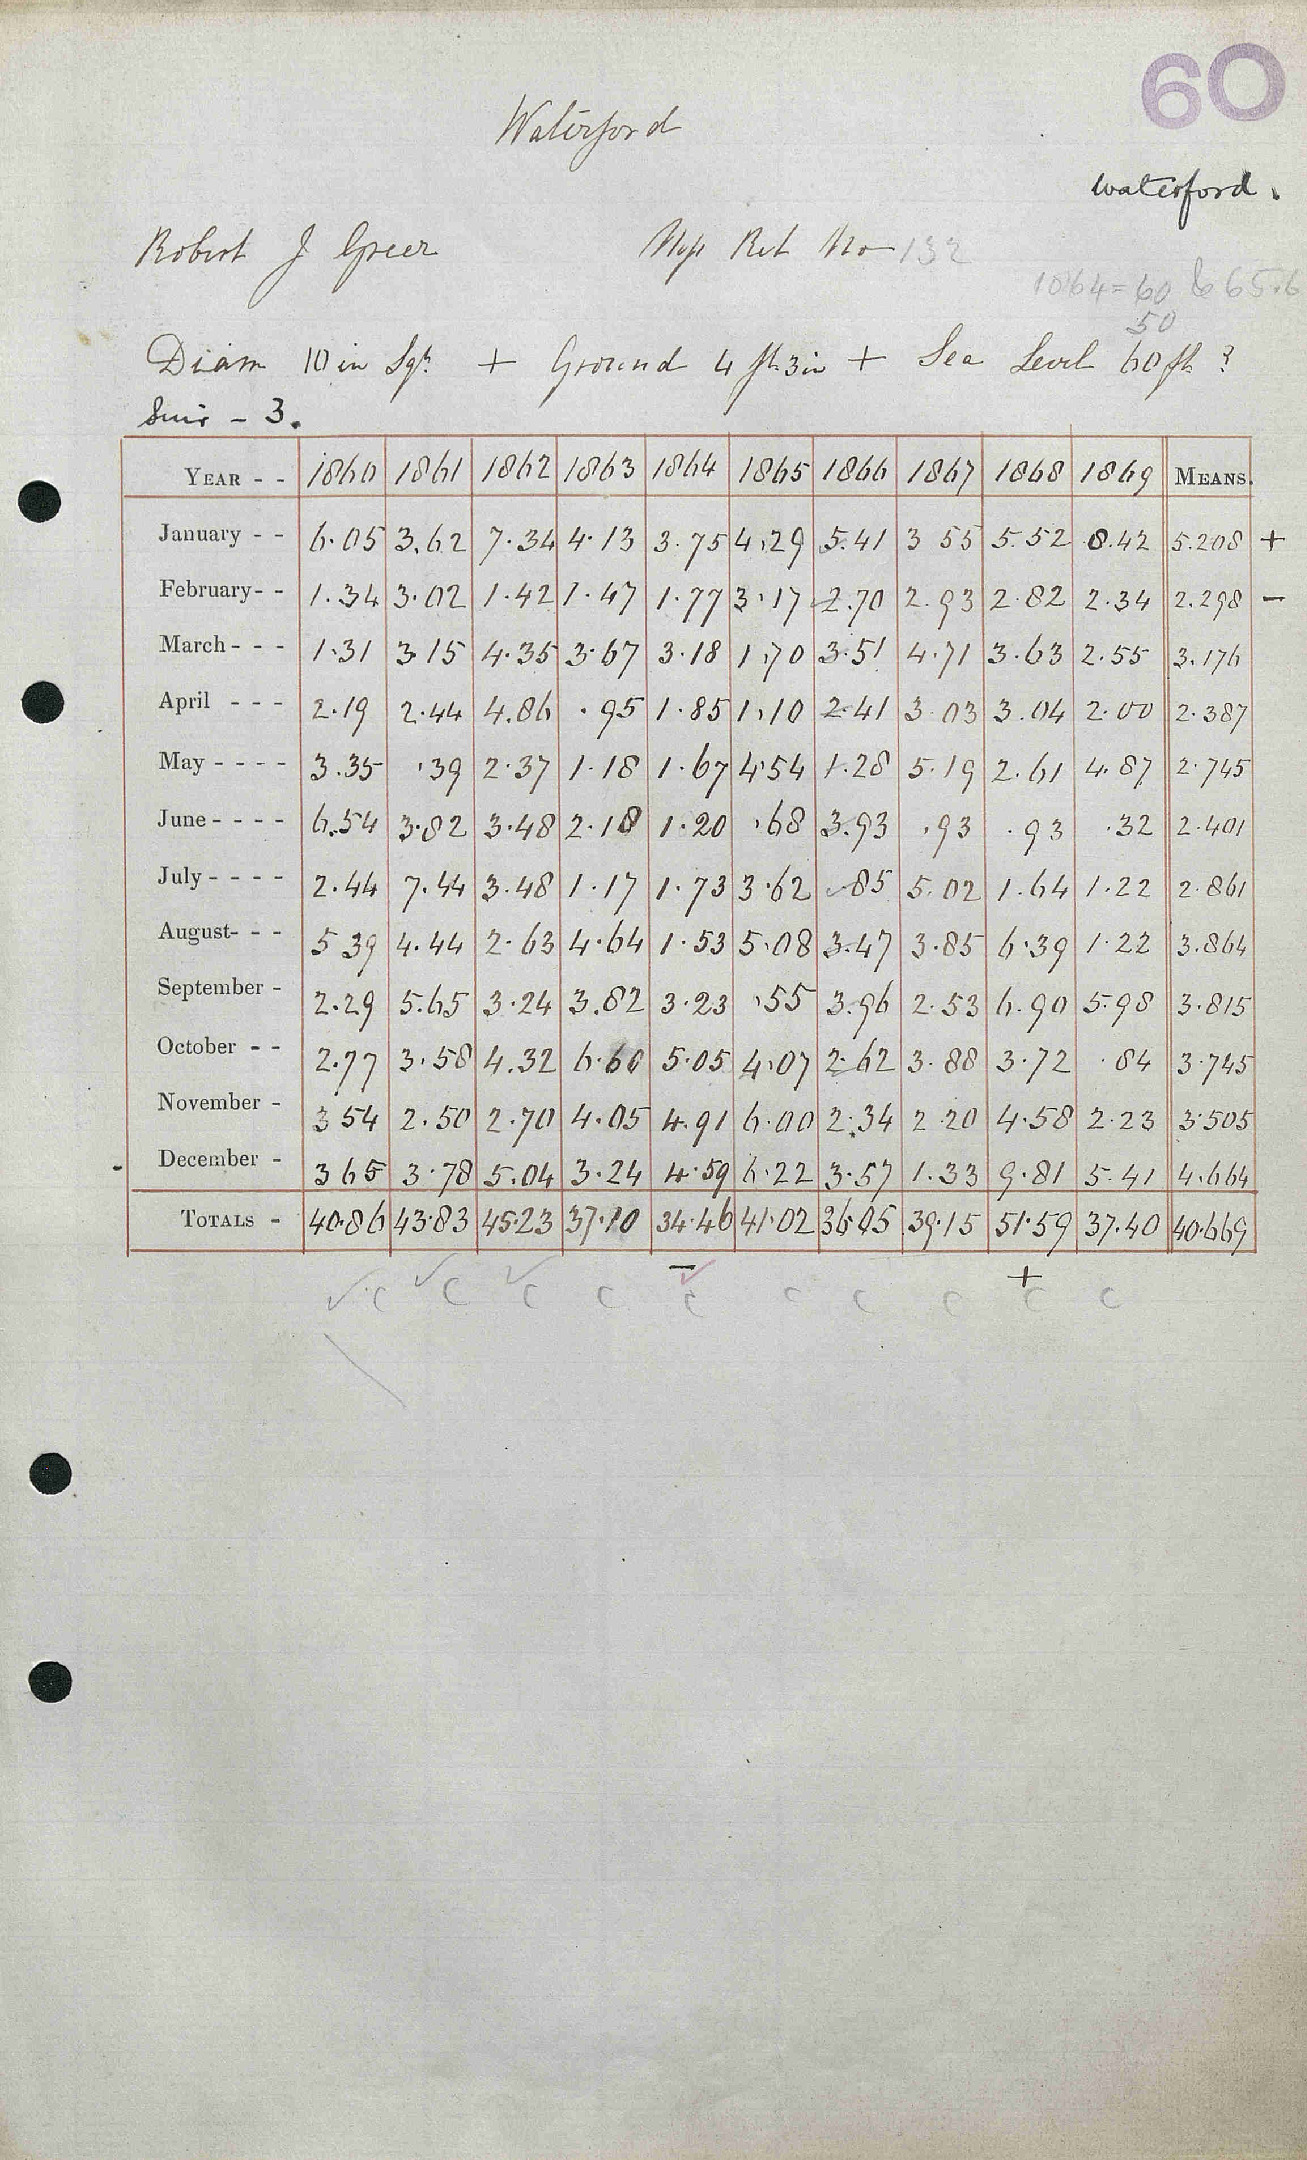 60
Waterford
Waterford.
Robert J Greer Map Ret No 132
1864 = 60 & 65.6
50
Diam 10 in Sqr + Ground 4 ft 3 in + Sea Level 60 ft ?
Suir - 3.
YEAR - - 1860 1861 1862 1863 1864 1865 1866 1867 1868 1869 MEANS.
January - - 6.05 3.62 7.34 4.13 3.75 4.29 5.41 3 55 5.52 8.42 5.208 +
February - - 1.34 3.02 1.42 1.47 1.77 3.17 2.70 2.93 2.82 2.34 2.298 -
March - - - 1.31 3 15 4.35 3.67 3.18 1.70 3.51 4.71 3.63 2.55 3.176
April - - - 2.19 2.44 4.86 .95 1.85 1.10 2.41 3 03 3.04 2.00 2.387
May - - - - 3.35 .39 2.37 1.18 1.67 4.54 1.28 5.19 2.61 4.87 2.745
June - - - - 6.54 3.82 3.48 2.18 1.20 .68 3.93 .93 .93 .32 2.401
July - - - - 2.44 7.44 3.48 1.17 1.73 3.62 .85 5.02 1.64 1.22 2.861
August - - - 5 39 4.44 2.63 4.64 1.53 5.08 3.47 3.85 6.39 1.22 3.864
September - 2.29 5.65 3.24 3.82 3.23 .55 3.96 2.53 6.90 5.98 3.815
October - - 2.77 3.58 4.32 6.60 5.05 4.07 2.62 3.88 3.72 .84 3.745
November - 3 54 2.50 2.70 4.05 4.91 6.00 2.34 2.20 4.58 2.23 3.505
December - 3 65 3.78 5.04 3.24 4.59 6.22 3.57 1.33 9.81 5.41 4.664
TOTALS - 40.86 43.83 45.23 37.10 34.46 41.02 36.05 39.15 51.59 37.40 40.669
- +
C C C C C C C C C C